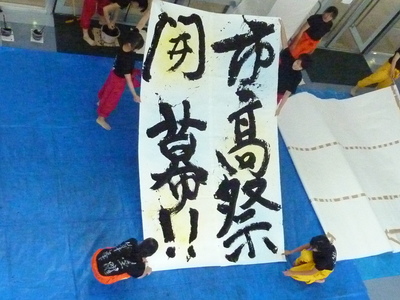 市高祭
開幕!!